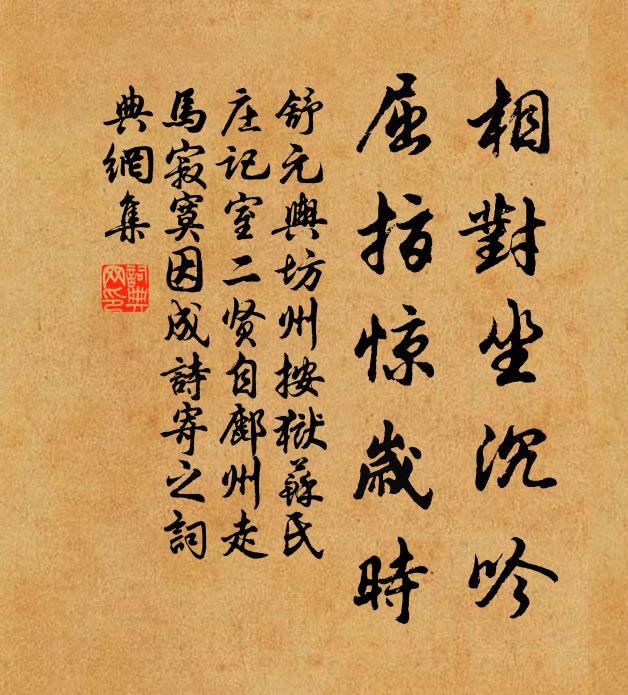 相對坐沉吟
屈指惊歲時
舒元輿坊州按獄蘇氏
庄记室二贤自鄜州走
馬寂寞因成詩寄之詞
典網集
詞典网印